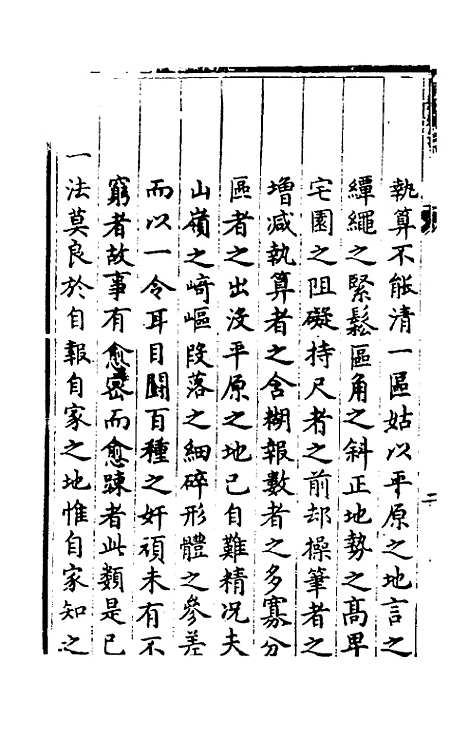 執算不能清一區姑以平原之地言之
繟繩之緊鬆區角之斜正地勢之髙卑
宅園之阻礙持尺者之前却操筆者之
增减執算者之含糊報數者之多寡分
區者之出没平原之地已自難精况夫
山嶺之崎嶇叚落之細碎形體之參差
而以一令耳目鬭百種之奸頑未有不
窮者故事有愈宻而愈踈者此類是已
一法莫良於自報自家之地惟自家知之
二